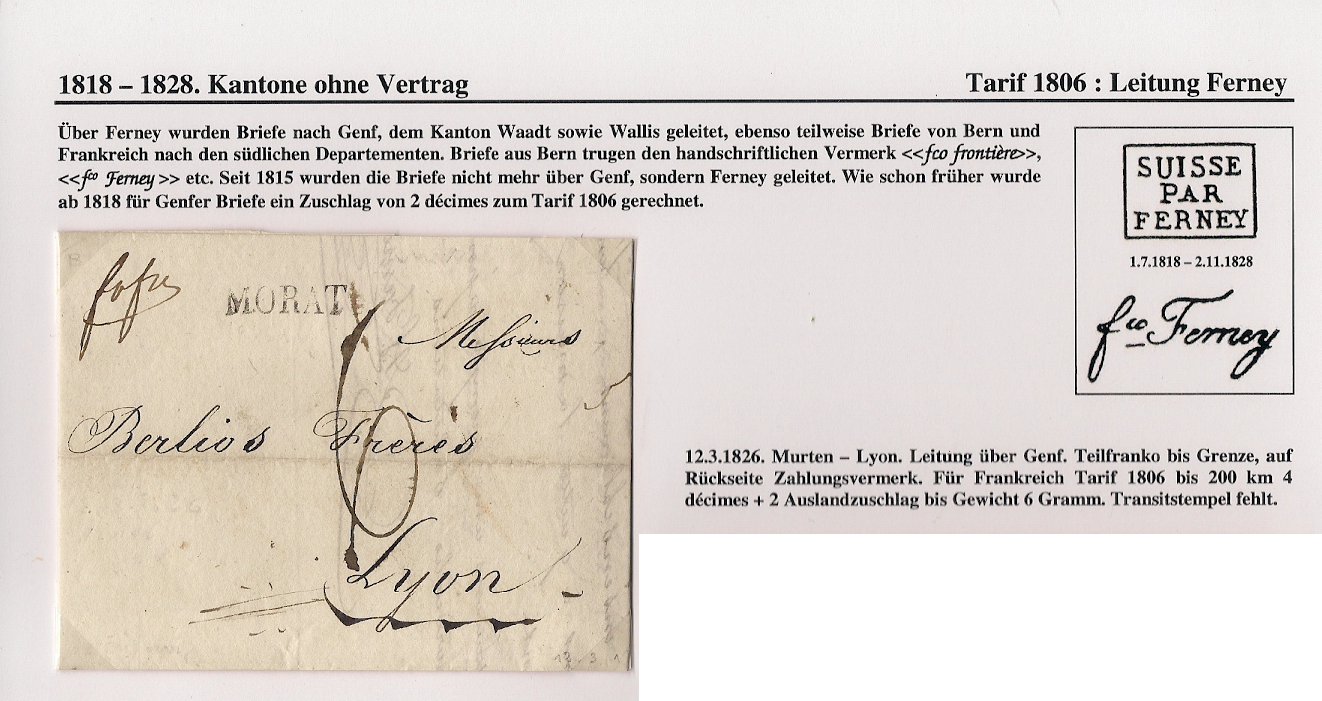 1818 – 1828. Kantone ohne Vertrag
Tarif 1806 : Leitung Ferney
Über Ferney wurden Briefe nach Genf, dem Kanton Waadt sowie Wallis geleitet, ebenso teilweise Briefe von Bern und
Frankreich nach den südlichen Departementen. Briefe aus Bern trugen den handschriftlichen Vermerk <<fco frontière>>,
<<fco Ferney >> etc. Seit 1815 wurden die Briefe nicht mehr über Genf, sondern Ferney geleitet. Wie schon früher wurde
ab 1818 für Genfer Briefe ein Zuschlag von 2 décimes zum Tarif 1806 gerechnet.
SUISSE
PAR
FERNEY
1.7.1818 – 2.11.1828
fco Ferney
MORAT
Messieurs
Berlios Frères
6
Lyon
12.3.1826. Murten – Lyon. Leitung über Genf. Teilfranko bis Grenze, auf
Rückseite Zahlungsvermerk. Für Frankreich Tarif 1806 bis 200 km 4
décimes + 2 Auslandzuschlag bis Gewicht 6 Gramm. Transitstempel fehlt.